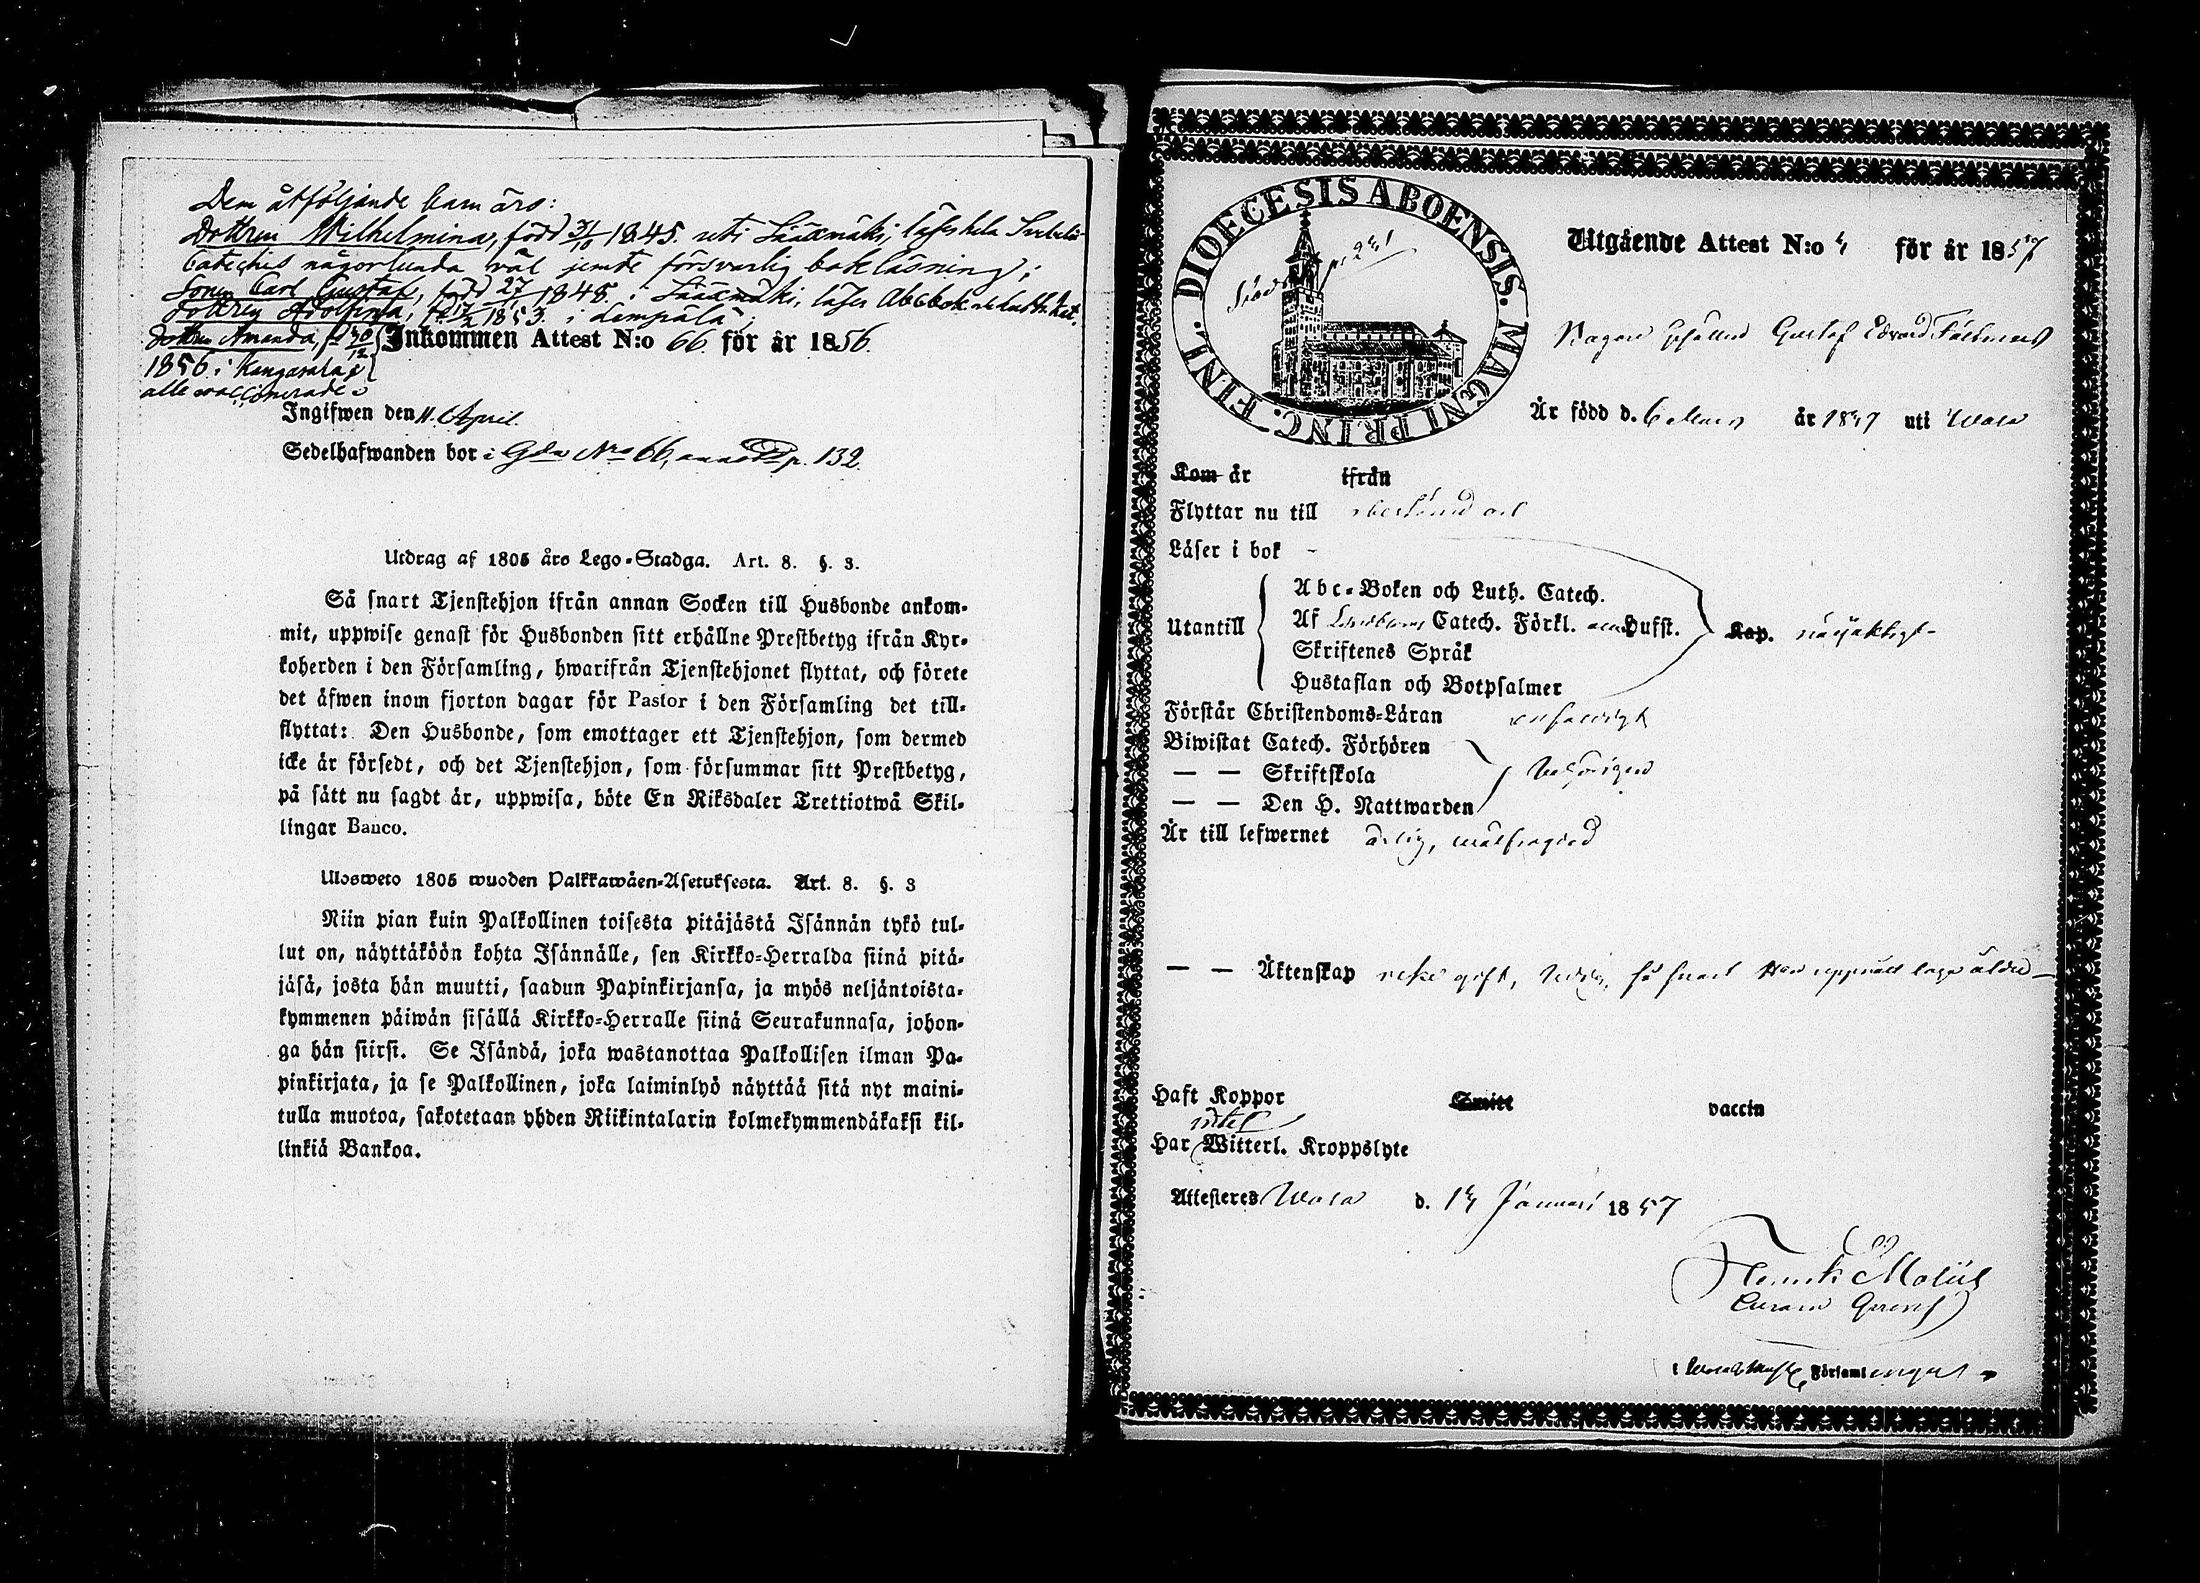 Dem åtföljande barn äro:
Dottren Wilhelmina, född 31/10 1845 uti Sääxmäki, läser hela
Catechis någorlunda väl jemte försvarlig bokläsning;
Sonen Carl Gustaf, född 27 1848 i Sääxmäki, läser Abcbok
Dottren Adolfina, 1853 i Lempälä;
Dottren Amanda, f. 20/12
1856 i Kangasala;
alle vaccinerade
Inkommen Attest N:o 66 för år 1856.
Ingifwen den 11 April.
Sedelhafwanden bor i Gdn Nro 66, p. 132.
Utdrag af 1805 års Lego-Stadga. Art. 8. §. 3.
Så snart Tjenstehjon ifrån annan Socken till Husbonde ankom-
mit, uppwise genast för Husbonden sitt erhållne Prestbetyg ifrån Kyr-
koherden i den Församling, hwarifrån Tjenstehjonet flyttat, och förete
det äfwen inom fjorton dagar för Pastor i den Församling det till-
flyttat: Den Husbonde, som emottager ett Tjenstehjon, som dermed
icke är försedt, och det Tjenstehjon, som försummar sitt Prestbetyg,
på sätt nu sagdt är, uppwisa, böte En Riksdaler Trettiotwå Skil-
lingar Banco.
Ulosweto 1805 wuoden Palkkawäen-Asetuksesta. Art. 8. §. 3
Niin pian kuin Palkollinen toisesta pitäjästä Isännän tykö tul-
lut on, näyttäköön kohta Isännälle, sen Kirkko-Herralda siinä pitä-
jäsä, josta hän muutti, saadun Papinkirjansa, ja myös neljäntoista-
kymmenen päiwän sisällä Kirkko-Herralle siinä Seurakunnasa, johon-
ga hän siirsi. Se Isändä, joka wastanottaa Palkollisen ilman Pa-
pinkirjata, ja se Palkollinen, joka laiminlyö näyttää sitä nyt maini-
tulla muotoa, sakotetaan yhden Riikintalarin kolmekymmendäkaksi kil-
linkiä Bankoa.
DIOECESIS ABOENSIS. MAGNI PRINC. FINL.
Utgående Attest N:o 4 för år 1857
Gustaf Edvard
Är född d. 6 Mars år uti Wasa
Kom år ifrån
Flyttar nu till
Läser i bok -
Utantill
Abc-Boken och Luth. Catech.
Af Catech. Förkl. Husst. Kap.
Skriftenes Språk
Hustaflan och Botpsalmer
Förstår Christendoms-Läran
Biwistat Catech. Förhören
— — Skriftskola
— — Den H. Nattwarden
Är till lefwernet ärlig, välfrägdad
— — Äktenskap icke gift, ledig, så snart Han uppnått laga ålder
Haft Koppor Smitt vaccin
intet
Har Witterl. Kroppslyte
Attesteras Wasa d. 14 Januari 1857
Henrik
i Församlingar